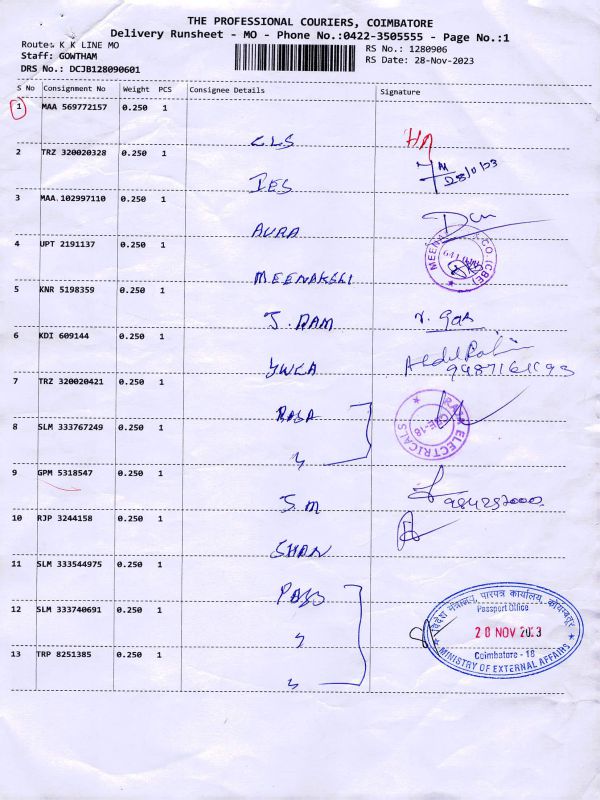 THE PROFESSIONAL COURIERS, COIMBATORE
Delivery Runsheet - MO - Phone No.:0422-3505555 - Page No.:1
Route: K K LINE MO
RS No.: 1280906
Staff: GOWTHAM
RS Date: 28-Nov-2023
DRS No.: DCJB128090601
S No Consignment No Weight PCS Consignee Details Signature
1 MAA 569772157 0.250 1
CLS
2 TRZ 320020328 0.250 1
IES
3 MAA 102997110 0.250 1
AURA
4 UPT 2191137 0.250 1
MEENAKSHI
5 KNR 5198359 0.250 1
J. RAM
6 KDI 609144 0.250 1
YWCA
7 TRZ 320020421 0.250 1
RAJA
ELECTRICALS
CBE-18
8 SLM 333767249 0.250 1
9 GPM 5318547 0.250 1
S.M
10 RJP 3244158 0.250 1
SHAN
11 SLM 333544975 0.250 1
PASS
विदेश मंत्रालय, पारपत्र कार्यालय, कोयम्बतूर
Passport Office
12 SLM 333740691 0.250 1
20 NOV 2023
Coimbatore - 18
MINISTRY OF EXTERNAL AFFAIRS
13 TRP 8251385 0.250 1